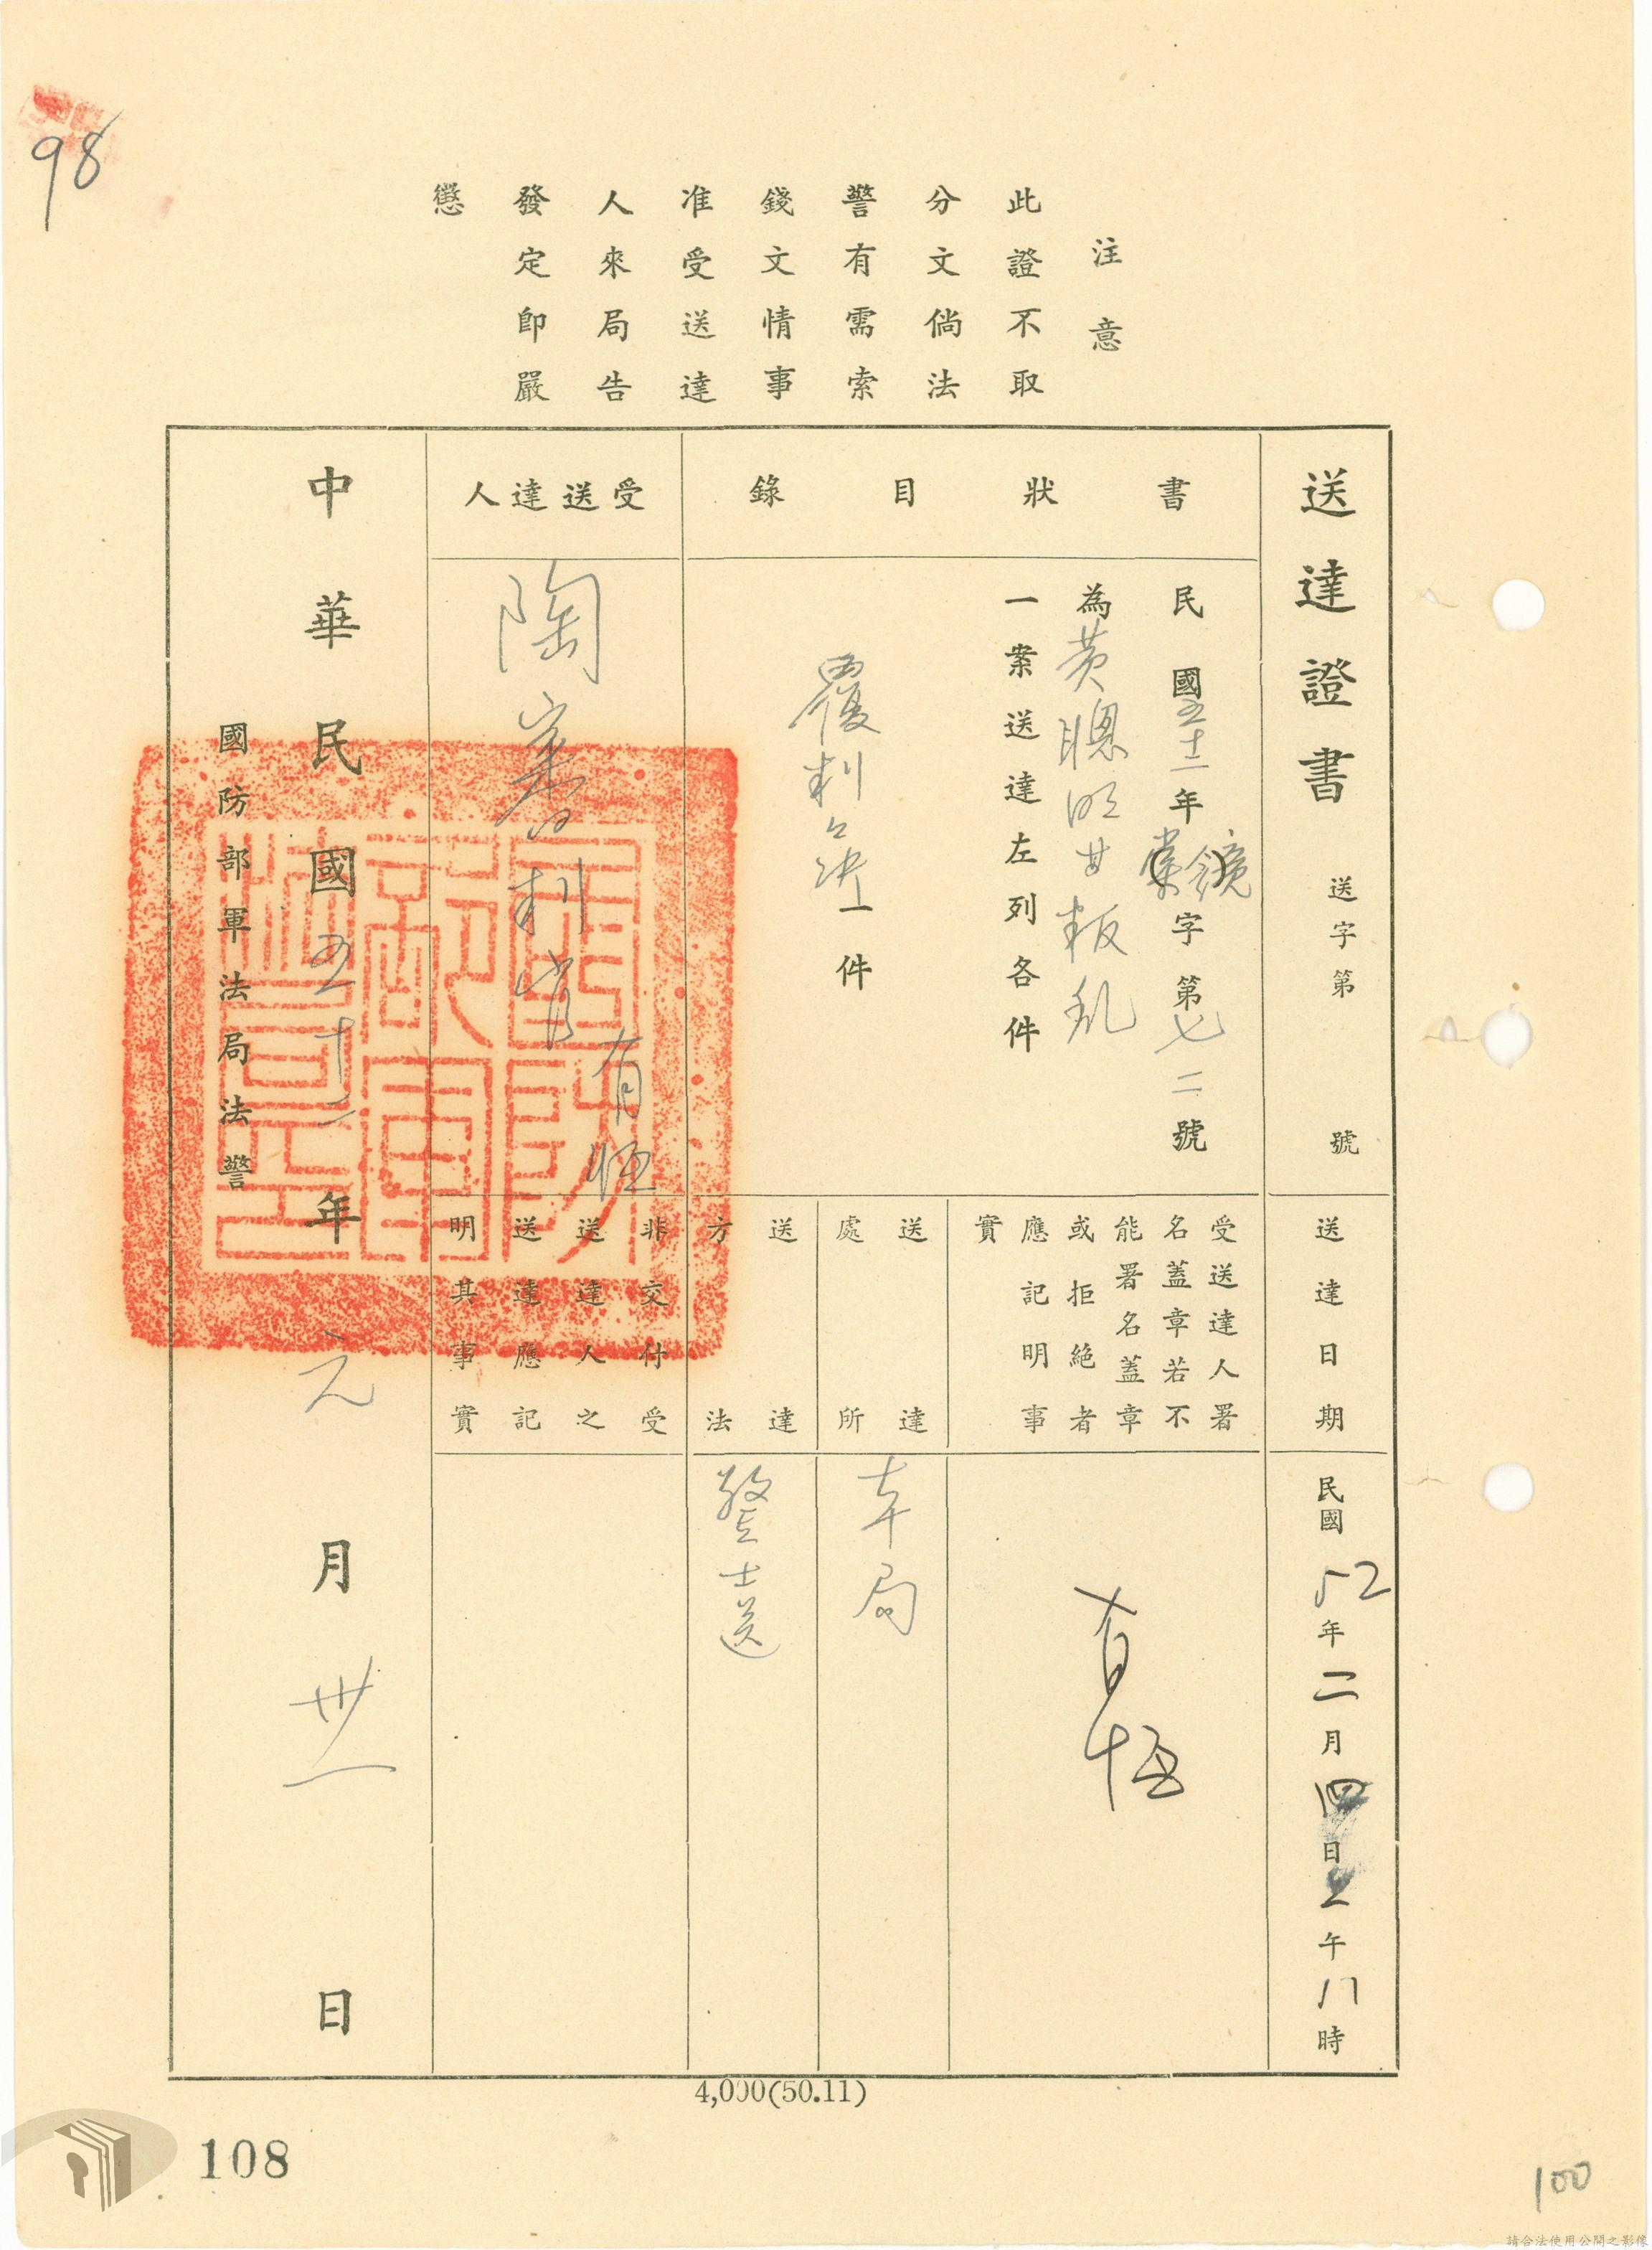 98
注意
此證不取
分文倘法
警有需索
錢文情事
准受送達
人來局告
發定即嚴
懲
送達證書 送字第 號
送達日期
民國52年二月四日上午八時
書狀目錄
民國五十二年覆鏡字第七二號
為黃聰明等叛乱
一案送達左列各件
覆判公決一件
受送達人署
名蓋章若不
能署名蓋章
或拒絕者
應記明事
實
送達
處所
本局
送達
方法
警士送
受送達人
陶
覆判官
有恆
非交付受
送達人之
送達應記
明其事實
中華民國五十二年元月卅一日
國防部軍法局法警
4,000(50.11)
108
100
請合法使用公開之影像